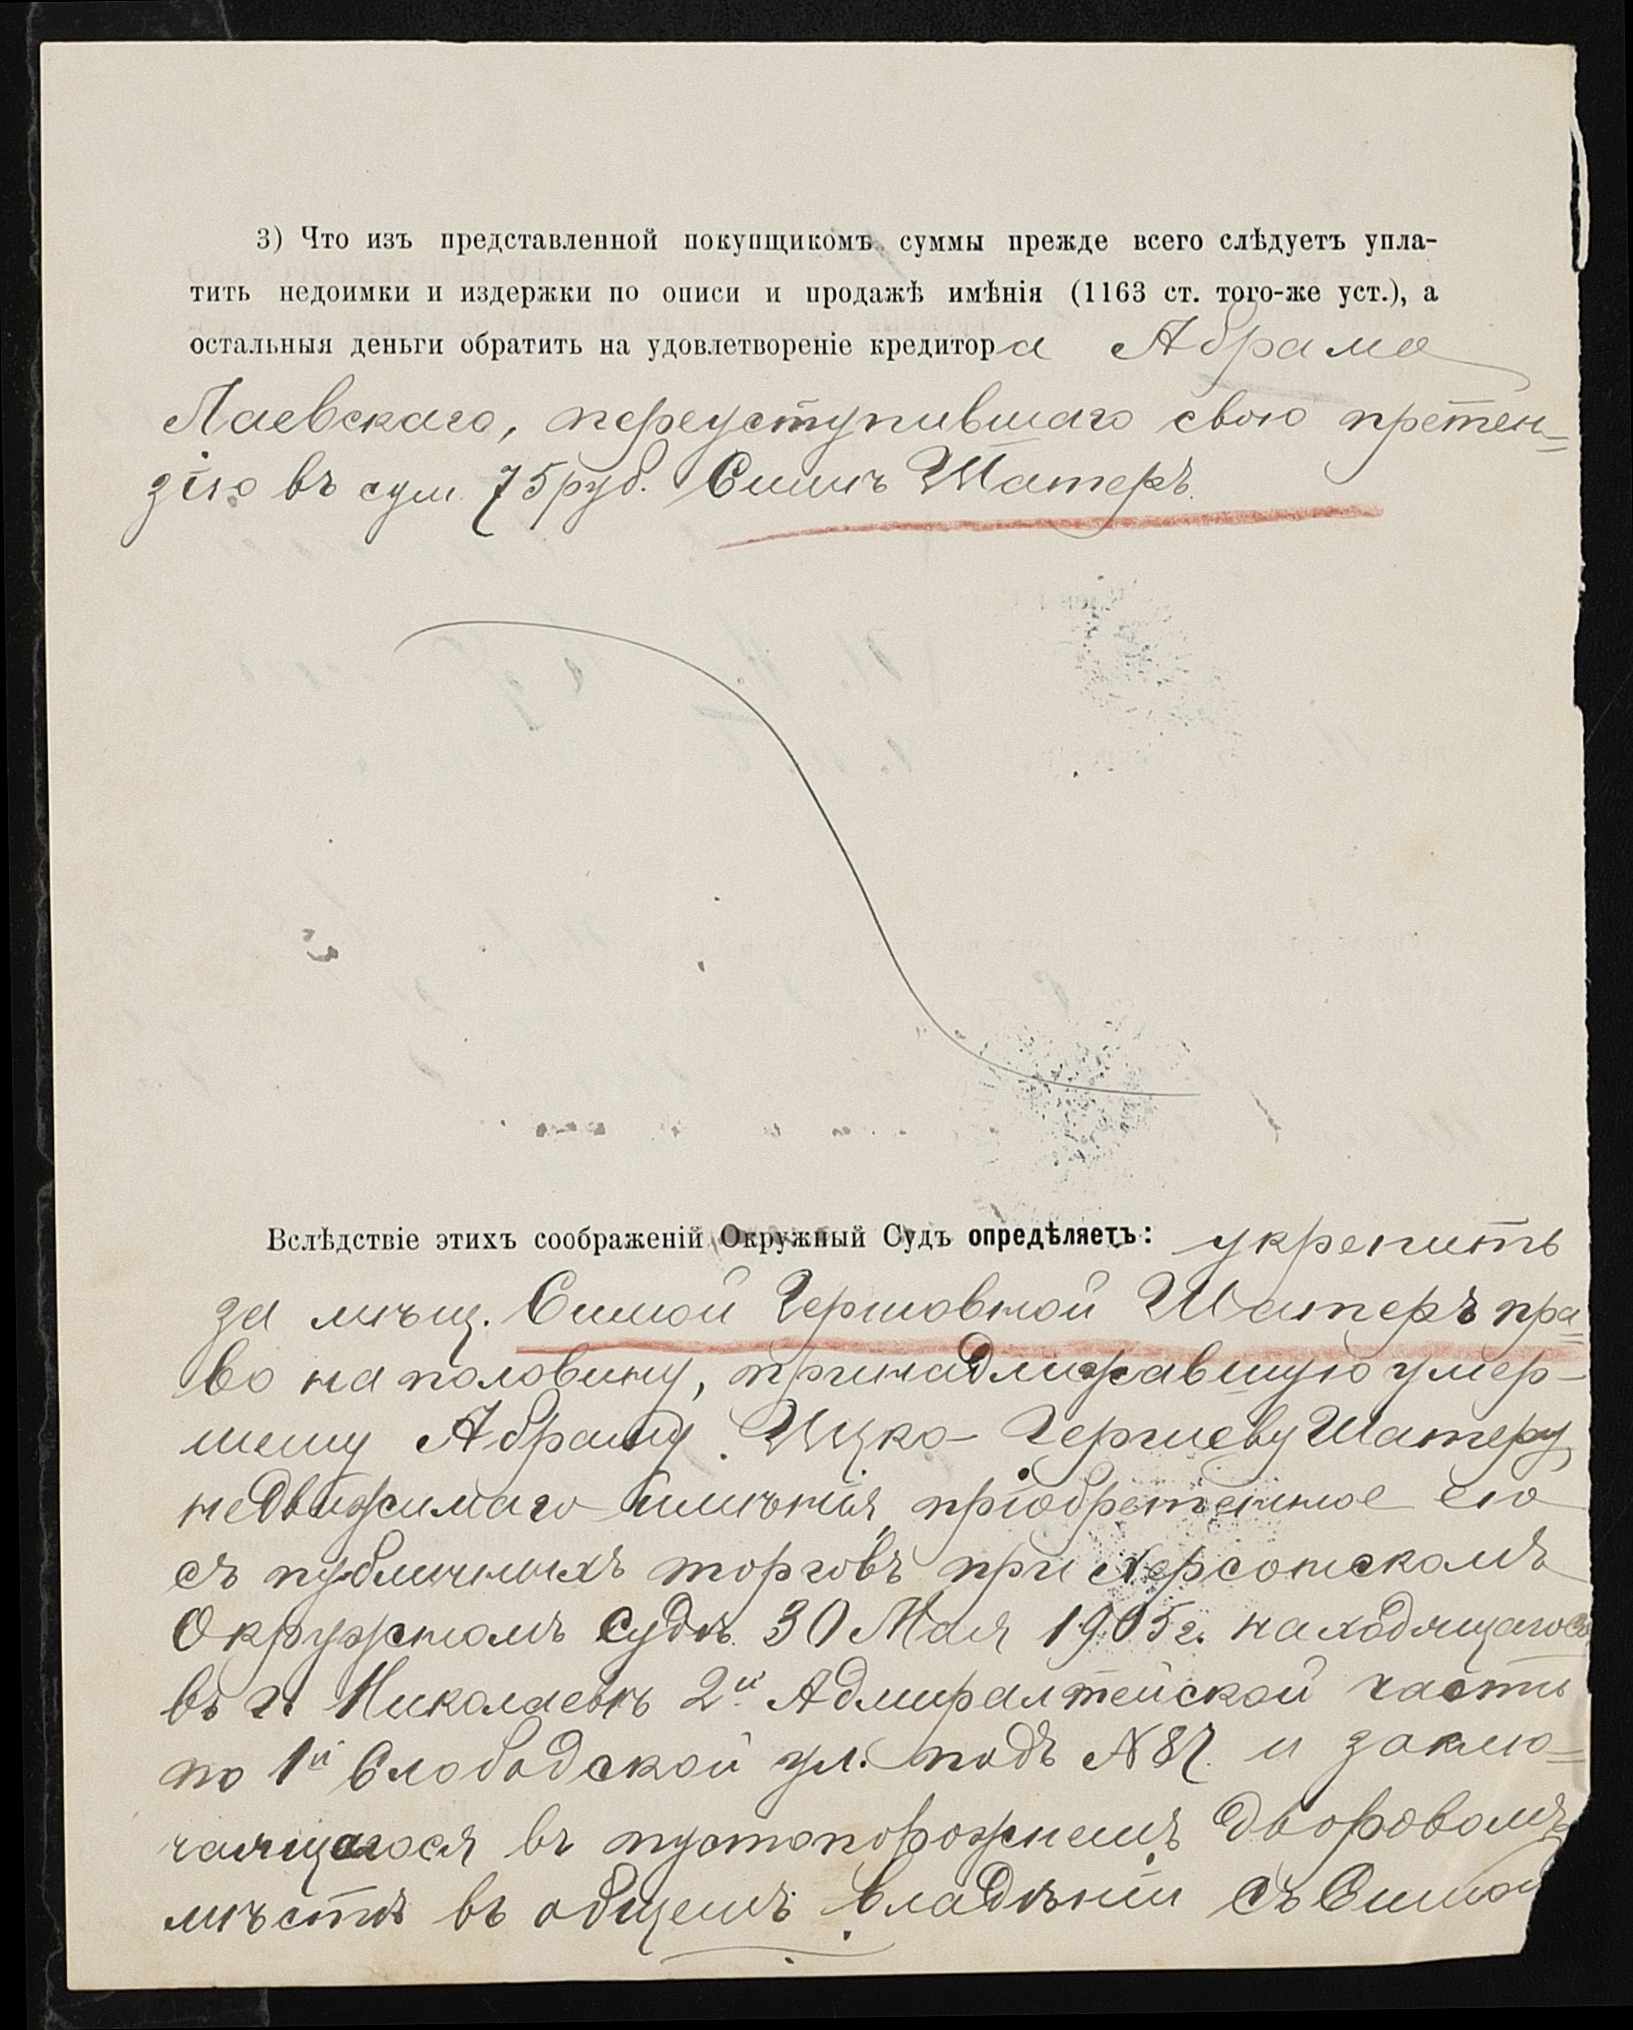 3) Что изъ представленной покупщикомъ суммы прежде всего слѣдуетъ упла-
тить недоимки и издержки по описи и продажѣ имѣнія (1163 ст. того-же уст.), а
остальныя деньги обратить на удовлетвореніе кредитора Абрама
Лаевскаго, переуступившаго свою претен=
зію въ сум. 75 руб. Симѣ Шатеръ.
Вслѣдствіе этихъ соображеній Окружный Судъ опредѣляетъ: укрепить
за мѣщ. Симой Гершовной Шатеръ пра=
во на половину, принадлежавшую умер-
шему Абраму Ицко-Гершеву Шатеру
недвижимаго имѣнія, пріобретенное ею
съ публичныхъ торговъ при Херсонскомъ
Окружномъ Судѣ 30 Мая 1905 г. находящагося
въ г. Николаевѣ 2й Адмиралтейской части
по 1й Слободской ул. подъ № 87. и заклю=
чающагося въ пустопорожнемъ дворовомъ
мѣстѣ въ общемъ владѣніи съ Симой